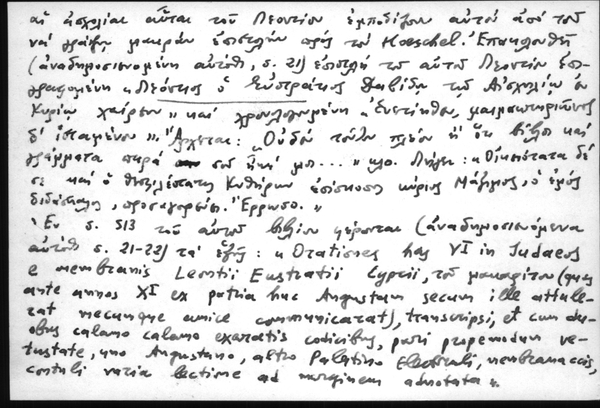 αἱ ἀσχολίαι αὗται τοῦ Λεοντίου ἐμποδίζουν αὐτὸν ἀπὸ τοῦ
νὰ γράψῃ μακρὰν ἐπιστολὴν πρὸς τὸν Hoeschel. Ἐπακολουθεῖ
(ἀναδημοσιευομένη αὐτόθι, s. 21) ἐπιστολὴ τοῦ αὐτοῦ Λεοντίου ἐπι-
γραφομένη «Λεόντιος ὁ Εὐστράτιος Δαβὶδ τῷ Αἰσχηλίῳ ἐν
Κυρίῳ χαίρειν» καὶ χρονολογουμένη «Ἐνετίηθεν, μαιμακτηριῶνος
δ' ἱσταμένου». Ἄρχεται: «Οὐδὲν τούτων πλέον ἢ ὅτι βίβλοι καὶ
γράμματα παρὰ σοῦ μοι...» κλπ. Λήγει: «Οἰκειότατα δέ
σε καὶ ὁ θεοφιλέστατος Κυθήρων ἐπίσκοπος κύριος Μάξιμος, ὁ ἐμὸς
διδάσκαλος, προσαγορεύει. Ἔρρωσο.»
Ἐν s. 513 τοῦ αὐτοῦ βιβλίου φέρονται (ἀναδημοσιευόμενα
αὐτόθι s. 21-22) τὰ ἑξῆς: «Orationes has VI in Judaeos
e membranis Leontii Eustratii Cyprii, τοῦ μακαρίτου (quas
ante annos XI ex patria huc Augustam secum ille attule-
rat mecumque amice communicarat), transcripsi, et cum du-
obus calamo calamo exaratis codicibus, pari propemodum ve-
tustate, uno Augustano, altro Palatino Electorali, membranaceis,
contuli varia lectione ad marginem adnotata».